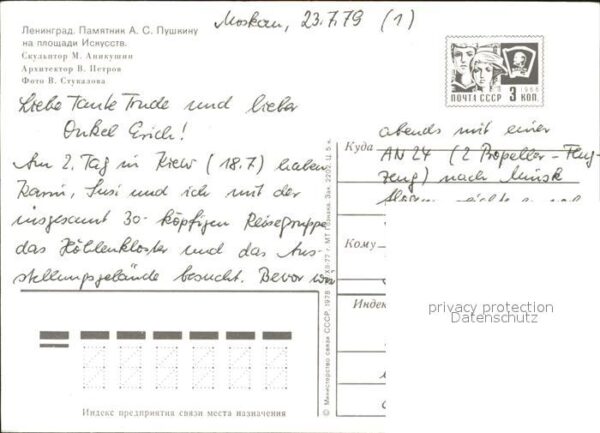 Ленинград. Памятник А. С. Пушкину
на площади Искусств.
Скульптор М. Аникушин
Архитектор В. Петров
Фото В. Стукалова
Moskau, 23.7.79 (1)
ПОЧТА СССР 3 КОП.
1966
Liebe Tante Trude und lieber
Onkel Erich!
Am 2. Tag in Kiew (18.7) haben
Susi und ich mit der
insgesamt 30-köpfigen Reisegruppe
das Höhlenkloster und das Aus-
stellungsgelände besucht. Bevor wir
abends mit einer
AN 24 (2 Propeller-Flug-
zeug) nach Minsk
Куда
Кому
Индекс
© Министерство связи СССР, 1978
МТ Гознака. Зак. 2202. Ц. 5 к.
privacy protection
Datenschutz
Индекс предприятия связи места назначения